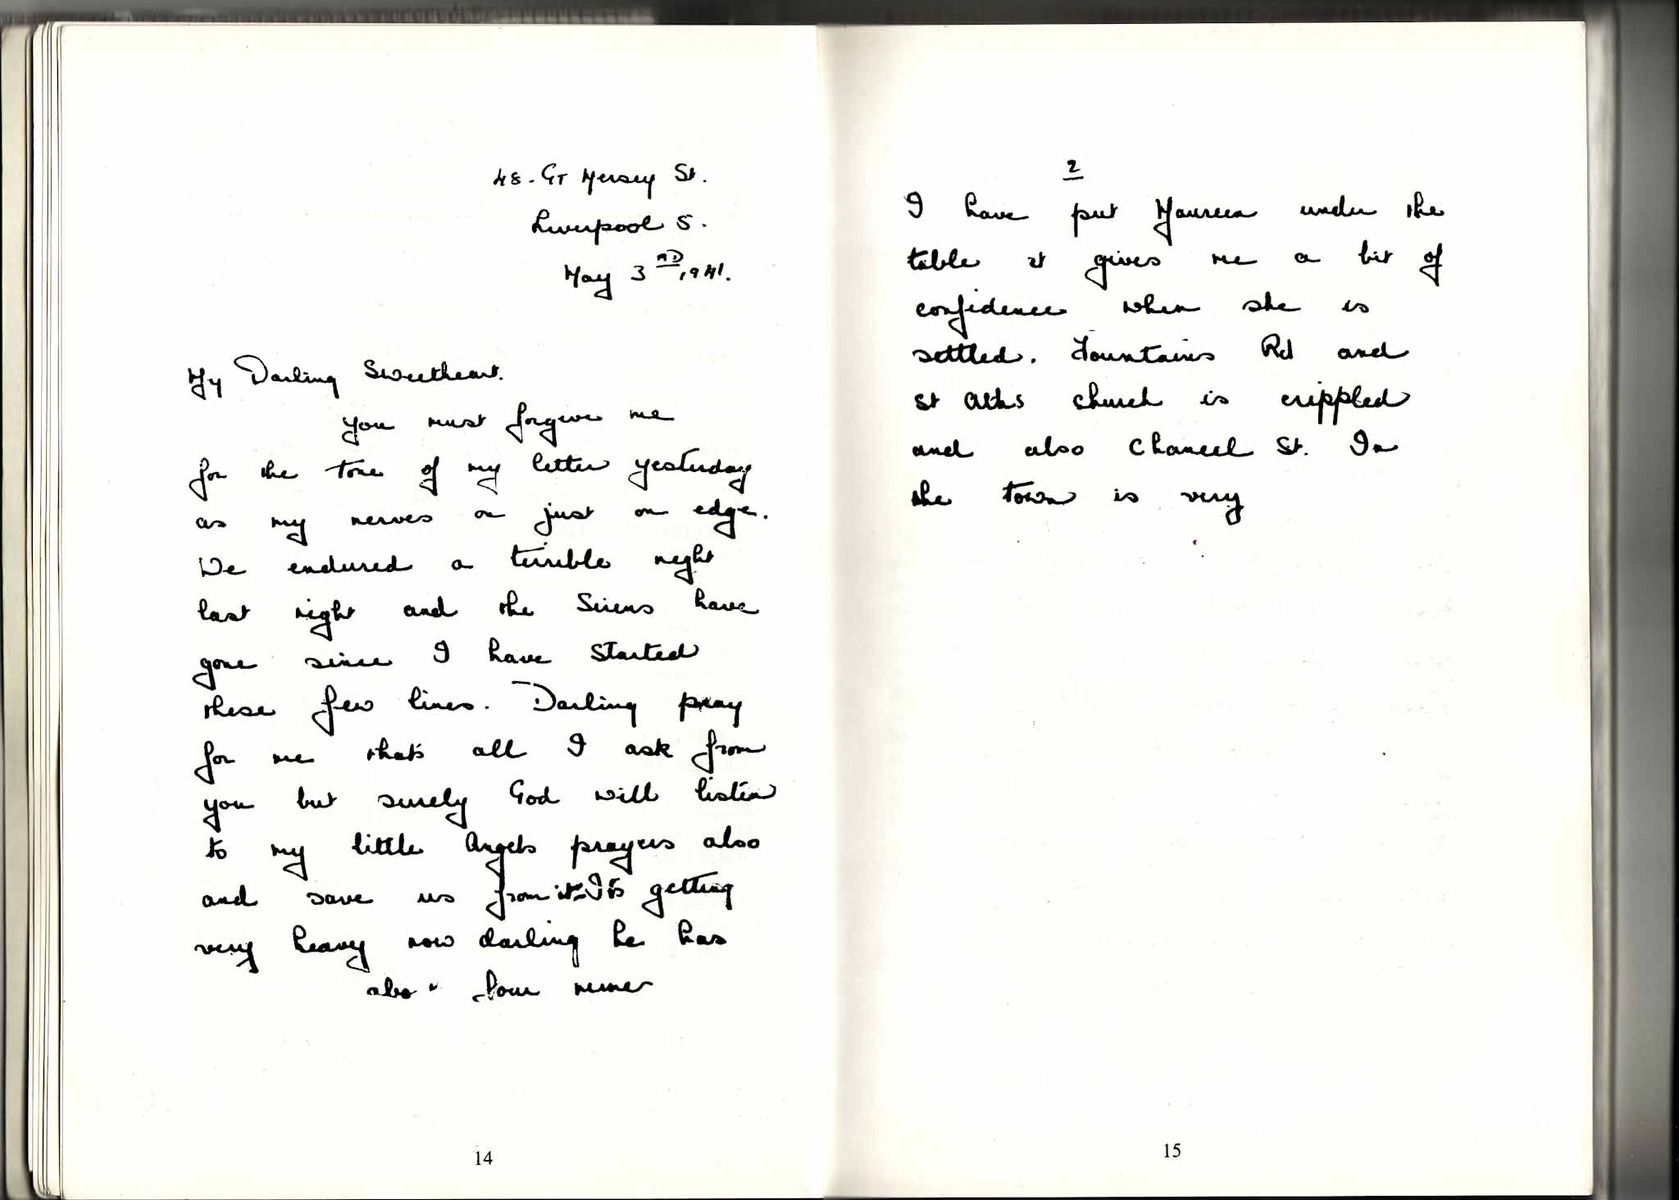 48. GT Mersey St.
Liverpool 5.
May 3RD, 1941.
My Darling Sweetheart.
You must forgive me
for the tone of my letter yesterday
as my nerves on just on edge.
We endured a terrible night
last night and the Sirens have
gone since I have started
these few lines. Darling pray
for me thats all I ask from
you but surely God will listen
to my little Angels prayers also
and save us from it. Its getting
very heavy now darling he has
also
14
2
I have put Maureen under the
table it gives me a bit of
confidence when she is
settled. Fountains Rd and
St Alths church is crippled
and also Chancel St. In
the town is very
15